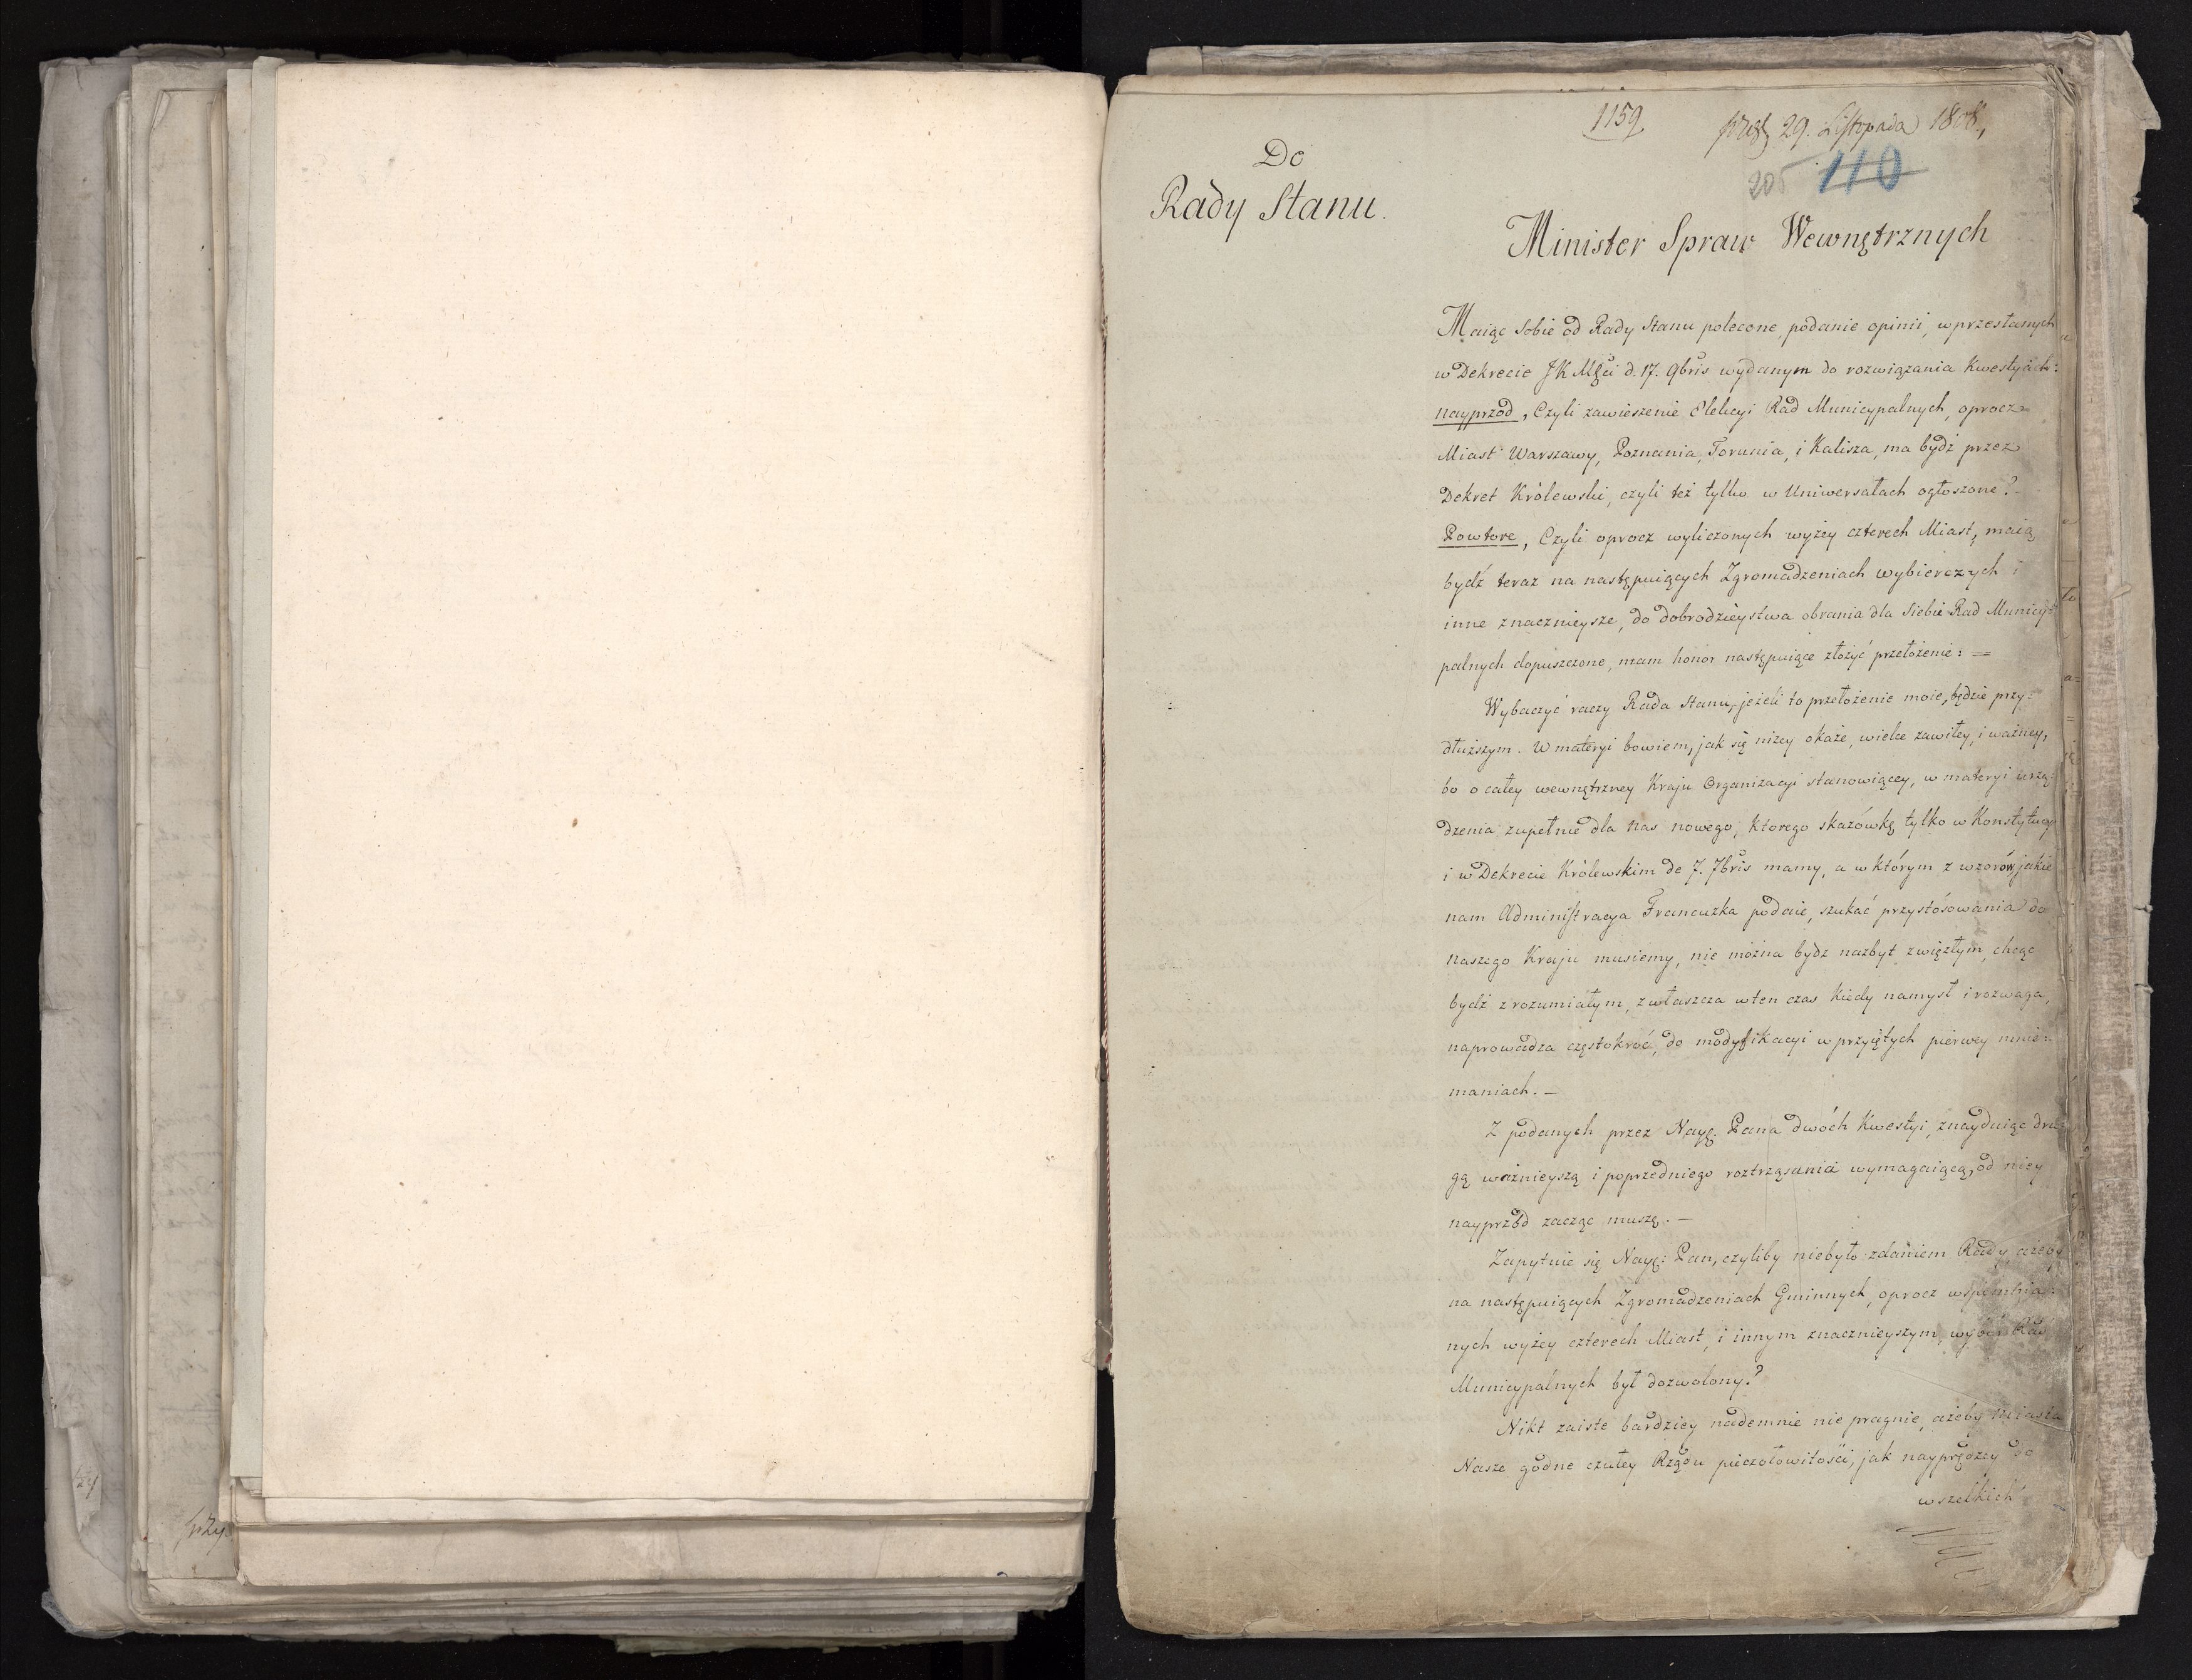 1159
29. Listopada 1808.
205 110
Do
Rady Stanu.
Minister Spraw Wewnętrznych
Maiąc sobie od Rady Stanu polecone, podanie opinii, w przesłanych
w Dekrecie JKMści d. 17. 9bris wydanym do rozwiązania Kwestyiach:
nayprzód, Czyli zawieszenie Elekcyi Rad Municypalnych, oprocz
Miast Warszawy, Poznania, Torunia, i Kalisza, ma bydź przez
Dekret Królewski, czyli też tylko w Uniwersałach ogłoszone?
Powtore, Czyli oprocz wyliczonych wyżey czterech Miast, maią
bydź teraz na następuiących Zgromadzeniach wybierczych i
inne znacznieysze, do dobrodzieystwa obrania dla siebie Rad Municy-
palnych dopuszczone, mam honor następuiące złożyć przełożenie: =
Wybaczyć raczy Rada Stanu, jeżeli to przełożenie moie, będzie przy-
dłuższym. W materyi bowiem, jak się niżey okaże, wielce zawiłey, i ważney,
bo o całey wewnętrzney Kraju Organizacyi stanowiącey, w materyi urzą-
dzenia zupełnie dla nas nowego, ktorego skazówkę tylko w Konstytucyi
i w Dekrecie Królewskim de 7. 7bris mamy, a w którym z wzorów jakie
nam Administracya Francuzka podaie, szukać przystósowania do
naszego Kraju musiemy, nie można bydz nazbyt zwięzłym, chcąc
bydź zrozumiałym, zwłaszcza w ten czas kiedy namysł i rozwaga,
naprowadza częstokroć, do modyfikacyi w przyiętych pierwey mnie-
maniach. —
Z podanych przez Nayj. Pana dwóch Kwestyi, znayduiąc dru-
gą ważnieyszą i poprzedniego roztrząsania wymagaiącą, od niey
nayprzód zacząc muszę. —
Zapytuie się Nayj: Pan, czyliby niebyło zdaniem Rady, ażeby
na następuiących Zgromadzeniach Gminnych, oprocz wspomnia-
nych wyżey czterech Miast, i innym znacznieyszym, wybór Rad
Municypalnych był dozwolony?
Nikt zaiste bardziey nademnie nie pragnie, ażeby miasta
Nasze godne czułey Rządu pieczołowitości, jak nayprędzey do
wszelkich